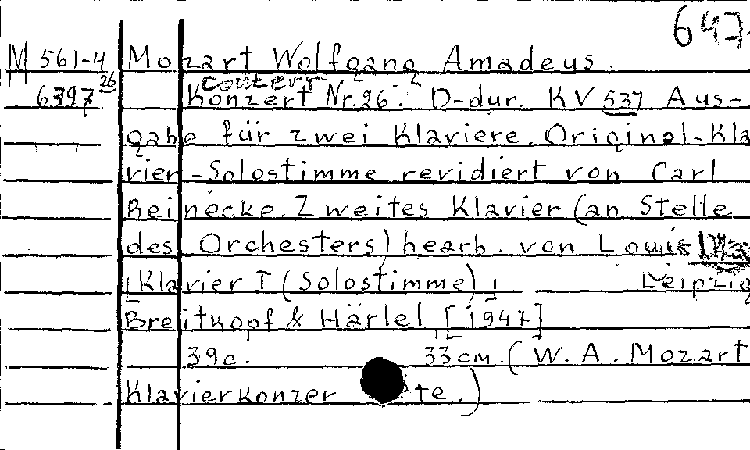 647
M 561-4 Mozart Wolfgang Amadeus.
6397 26 Concert
Konzert Nr. 26. D-dur. KV 537 Aus-
gabe für zwei Klaviere. Original-Kla
vier-Solostimme revidiert von Carl
Reinecke. Zweites Klavier (an Stelle
des Orchesters) bearb. von Louis
[Klavier I (Solostimme)] Leipzig
Breitkopf & Härtel [1947]
39c. 33cm (W. A. Mozart
Klavierkonzer te.)